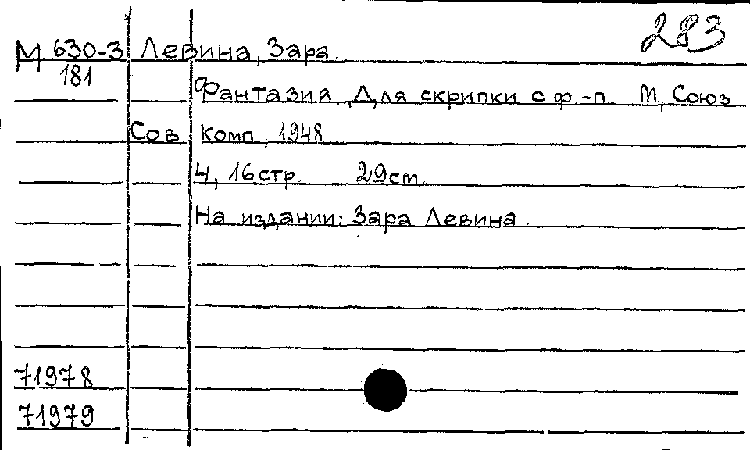 283
М 630-3 Левина, Зара.
181
Фантазия. Для скрипки с ф.-п. М, Союз
Сов комп, 1948
4, 16 стр. 29 см.
На издании: Зара Левина.
71978
71979